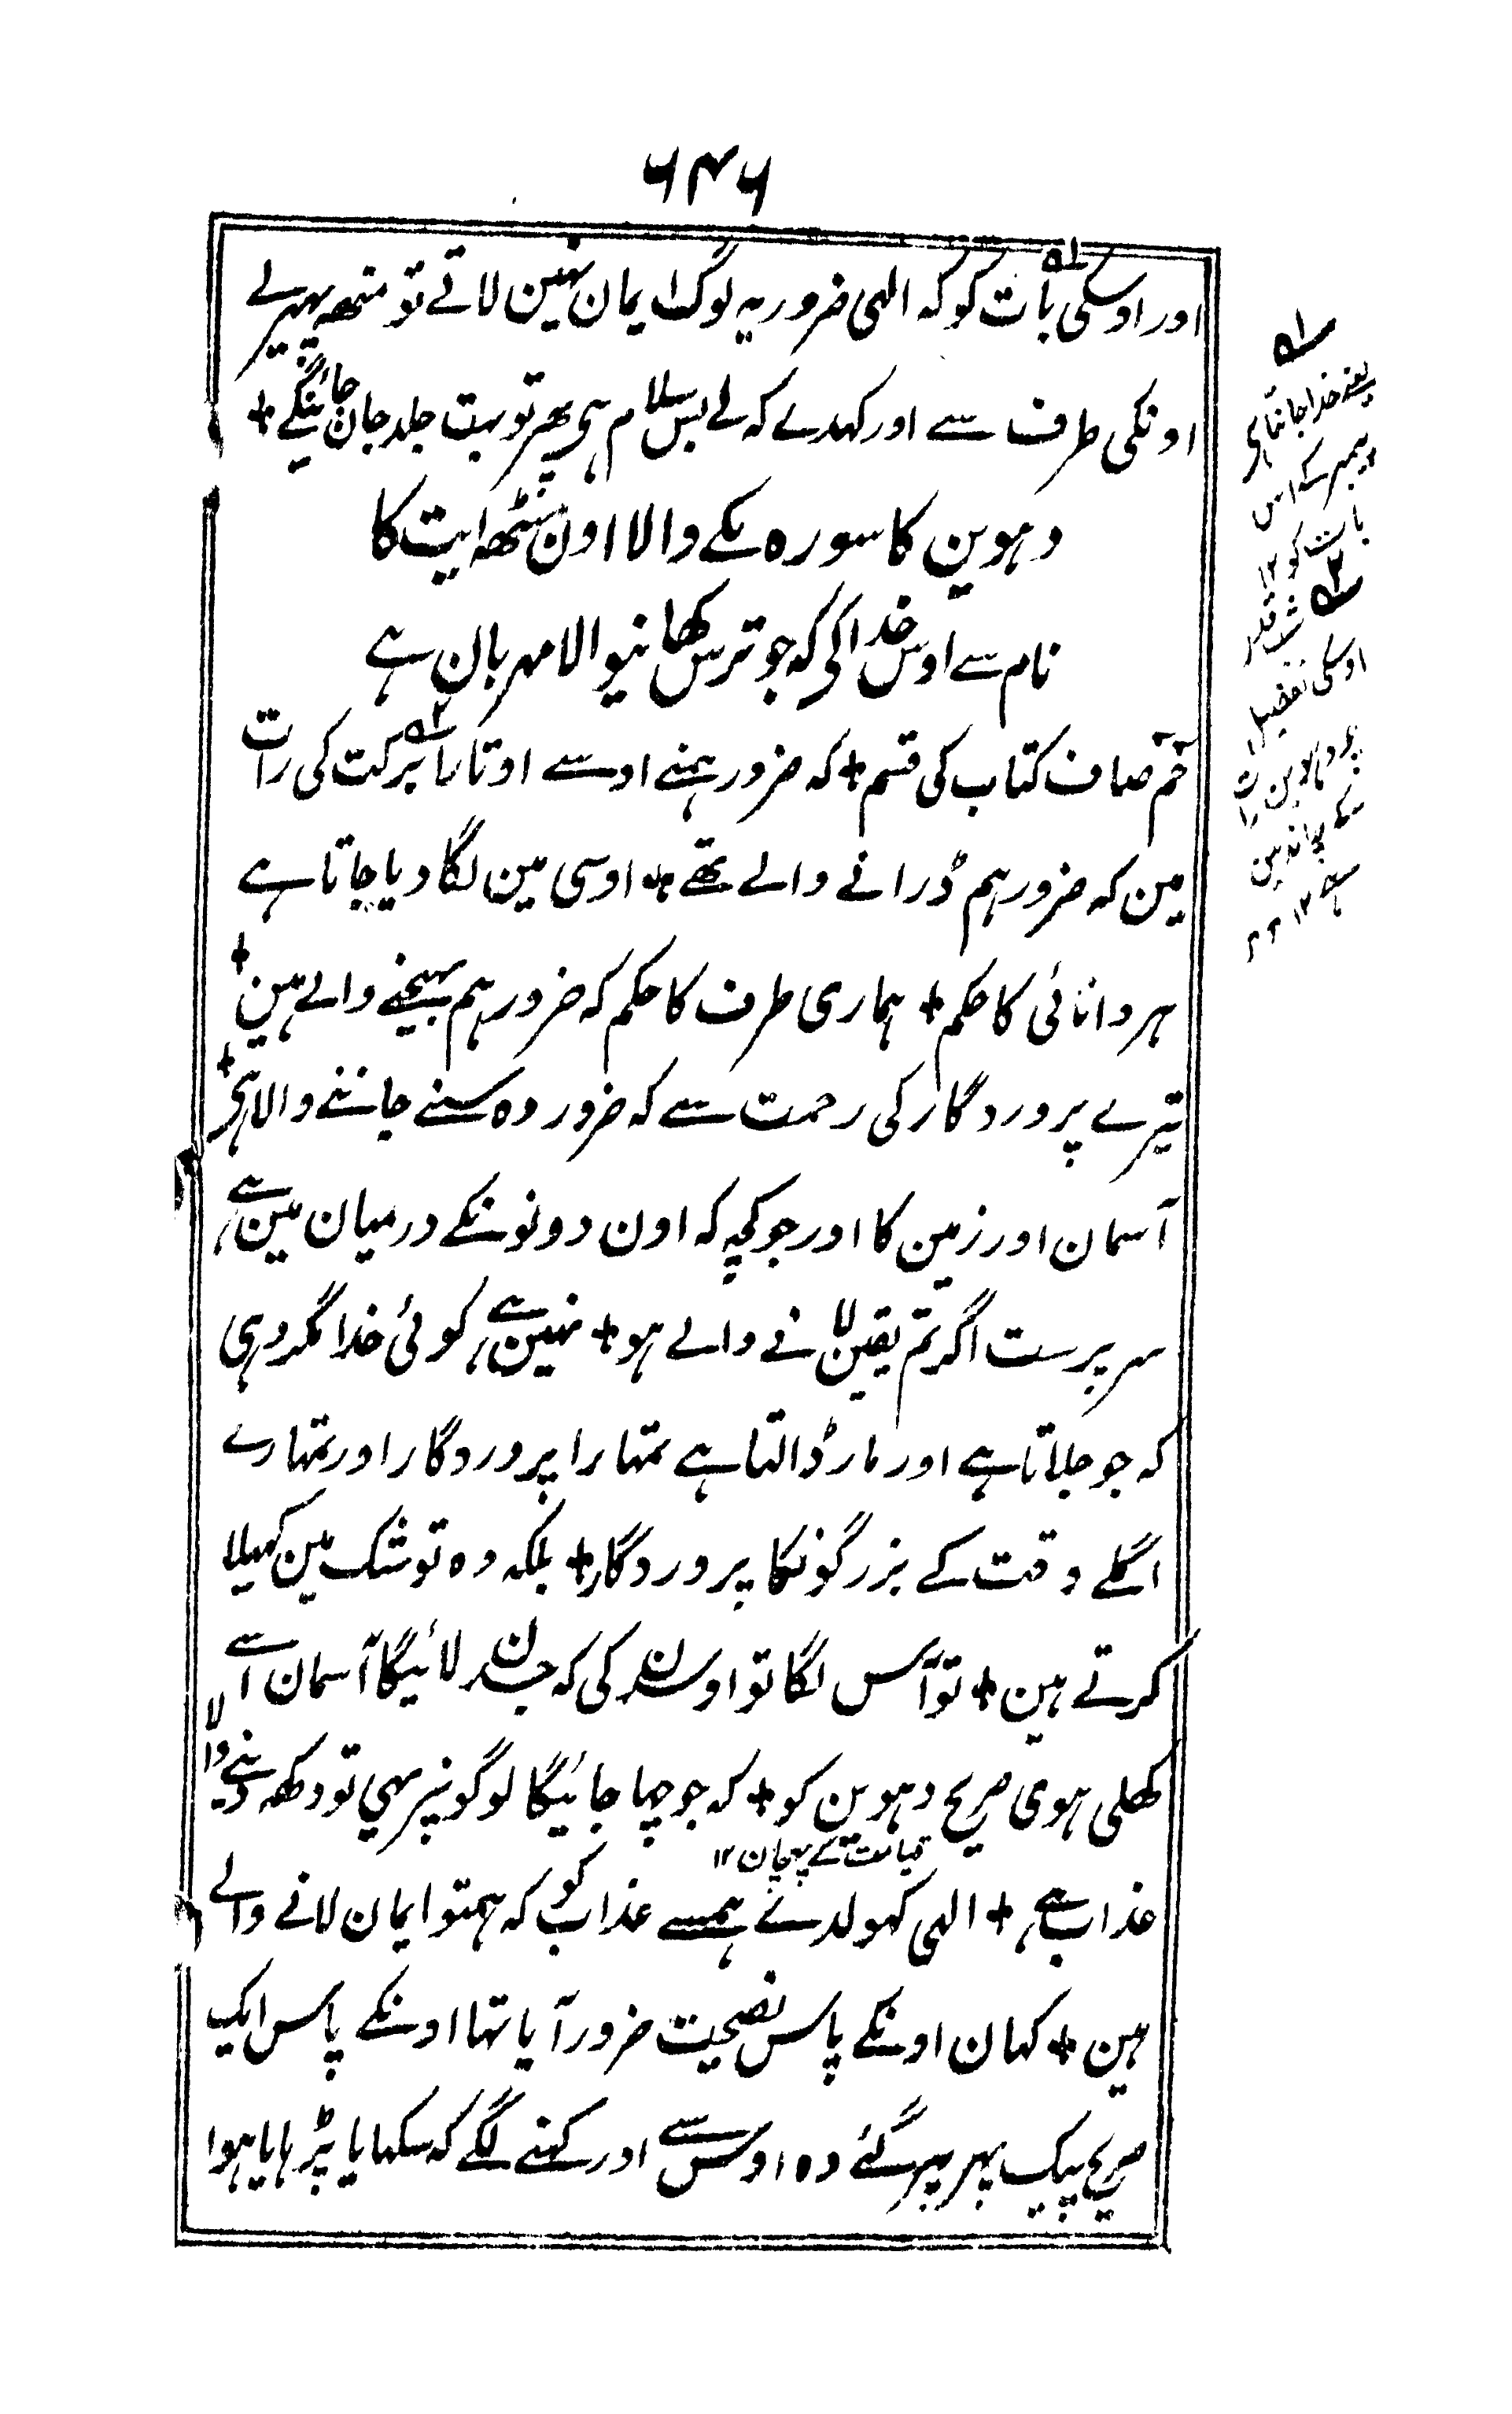 ۶۴۶
اور اوسکی بات کو کہ الہی ضرور یہ لوگ ایمان نہین لاتے تو منھہ پہیر لے
اونکی طرف سے اور کہدے کہ لے بس سلام ہی پھر تو بہت جلد جان جائینگے +
دہوین کا سورہ مکے والا اون سٹھہ ایت کا
نام سے اوس خدا کی کہ جو ترس کھانیوالا مہربان ہے
حٰمٓ صاف کتاب کی قسم + کہ ضرور ہمنے اوسے اوتارا برکت کی رات
مین کہ ضرور ہم ڈرانے والے تھے + اوسی مین لگا دیا جاتا ہے
ہر دانائی کا حکم + ہماری طرف کا حکم کہ ضرور ہم بہیجنے والے ہین +
تیرے پروردگار کی رحمت سے کہ ضرور وہ سننے جاننے والا ہی +
آسمان اور زمین کا اور جو کچہ کہ اون دونونکے درمیان مین ہے
سرپرست اگر تم یقین لانے والے ہو + نہین ہے کوئی خدا مگر وہی
کہ جو جلاتا ہے اور مار ڈالتا ہے تمہارا پروردگار اور تمہارے
اگلے وقت کے بزرگونکا پروردگار + بلکہ وہ تو شک مین کہیلا
کرتے ہین + تو آس لگا تو اوسدن کی کہ جسدن لائیگا آسمان اسے
کھلی ہوی صریح دہوین کو + کہ جو چہا جائیگا لوگونپر یہی تو دکھہ دینے والا
قیامت کے پہچان ۱۲
عذاب ہے + الہی کہولدے ہمسے عذاب کو کہ ہمتو ایمان لانے والے
ہین + کہان اونکے پاس نصیحت ضرور آیا تہا اونکے پاس ایک
صریح پیک پہر پہر گئے وہ اوس سے اور کہنے لگے کہ سکہایا پڑہایا ہوا
یعنے خدا جانتا ہی
پیمبر کے اس
بات کو ۱۲
شب قدر
اوسکی تفصیل